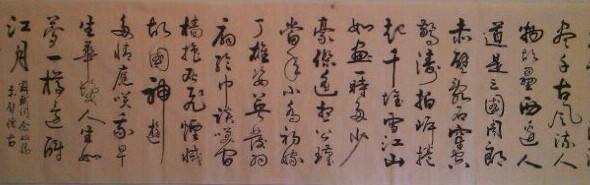 尽千古風流人
物故壘西邊人
道是三國周郎
赤壁亂石穿空
驚濤拍岸捲
起千堆雪江山
如畫一時多少
豪傑遙想公瑾
當年小喬初嫁
了雄姿英發羽
扇綸巾談笑間
檣櫓灰飛煙滅
故國神遊
多情應笑我早
生華髮人生如
夢一樽還酹
江月
蘇軾詞念奴嬌
赤壁懷古